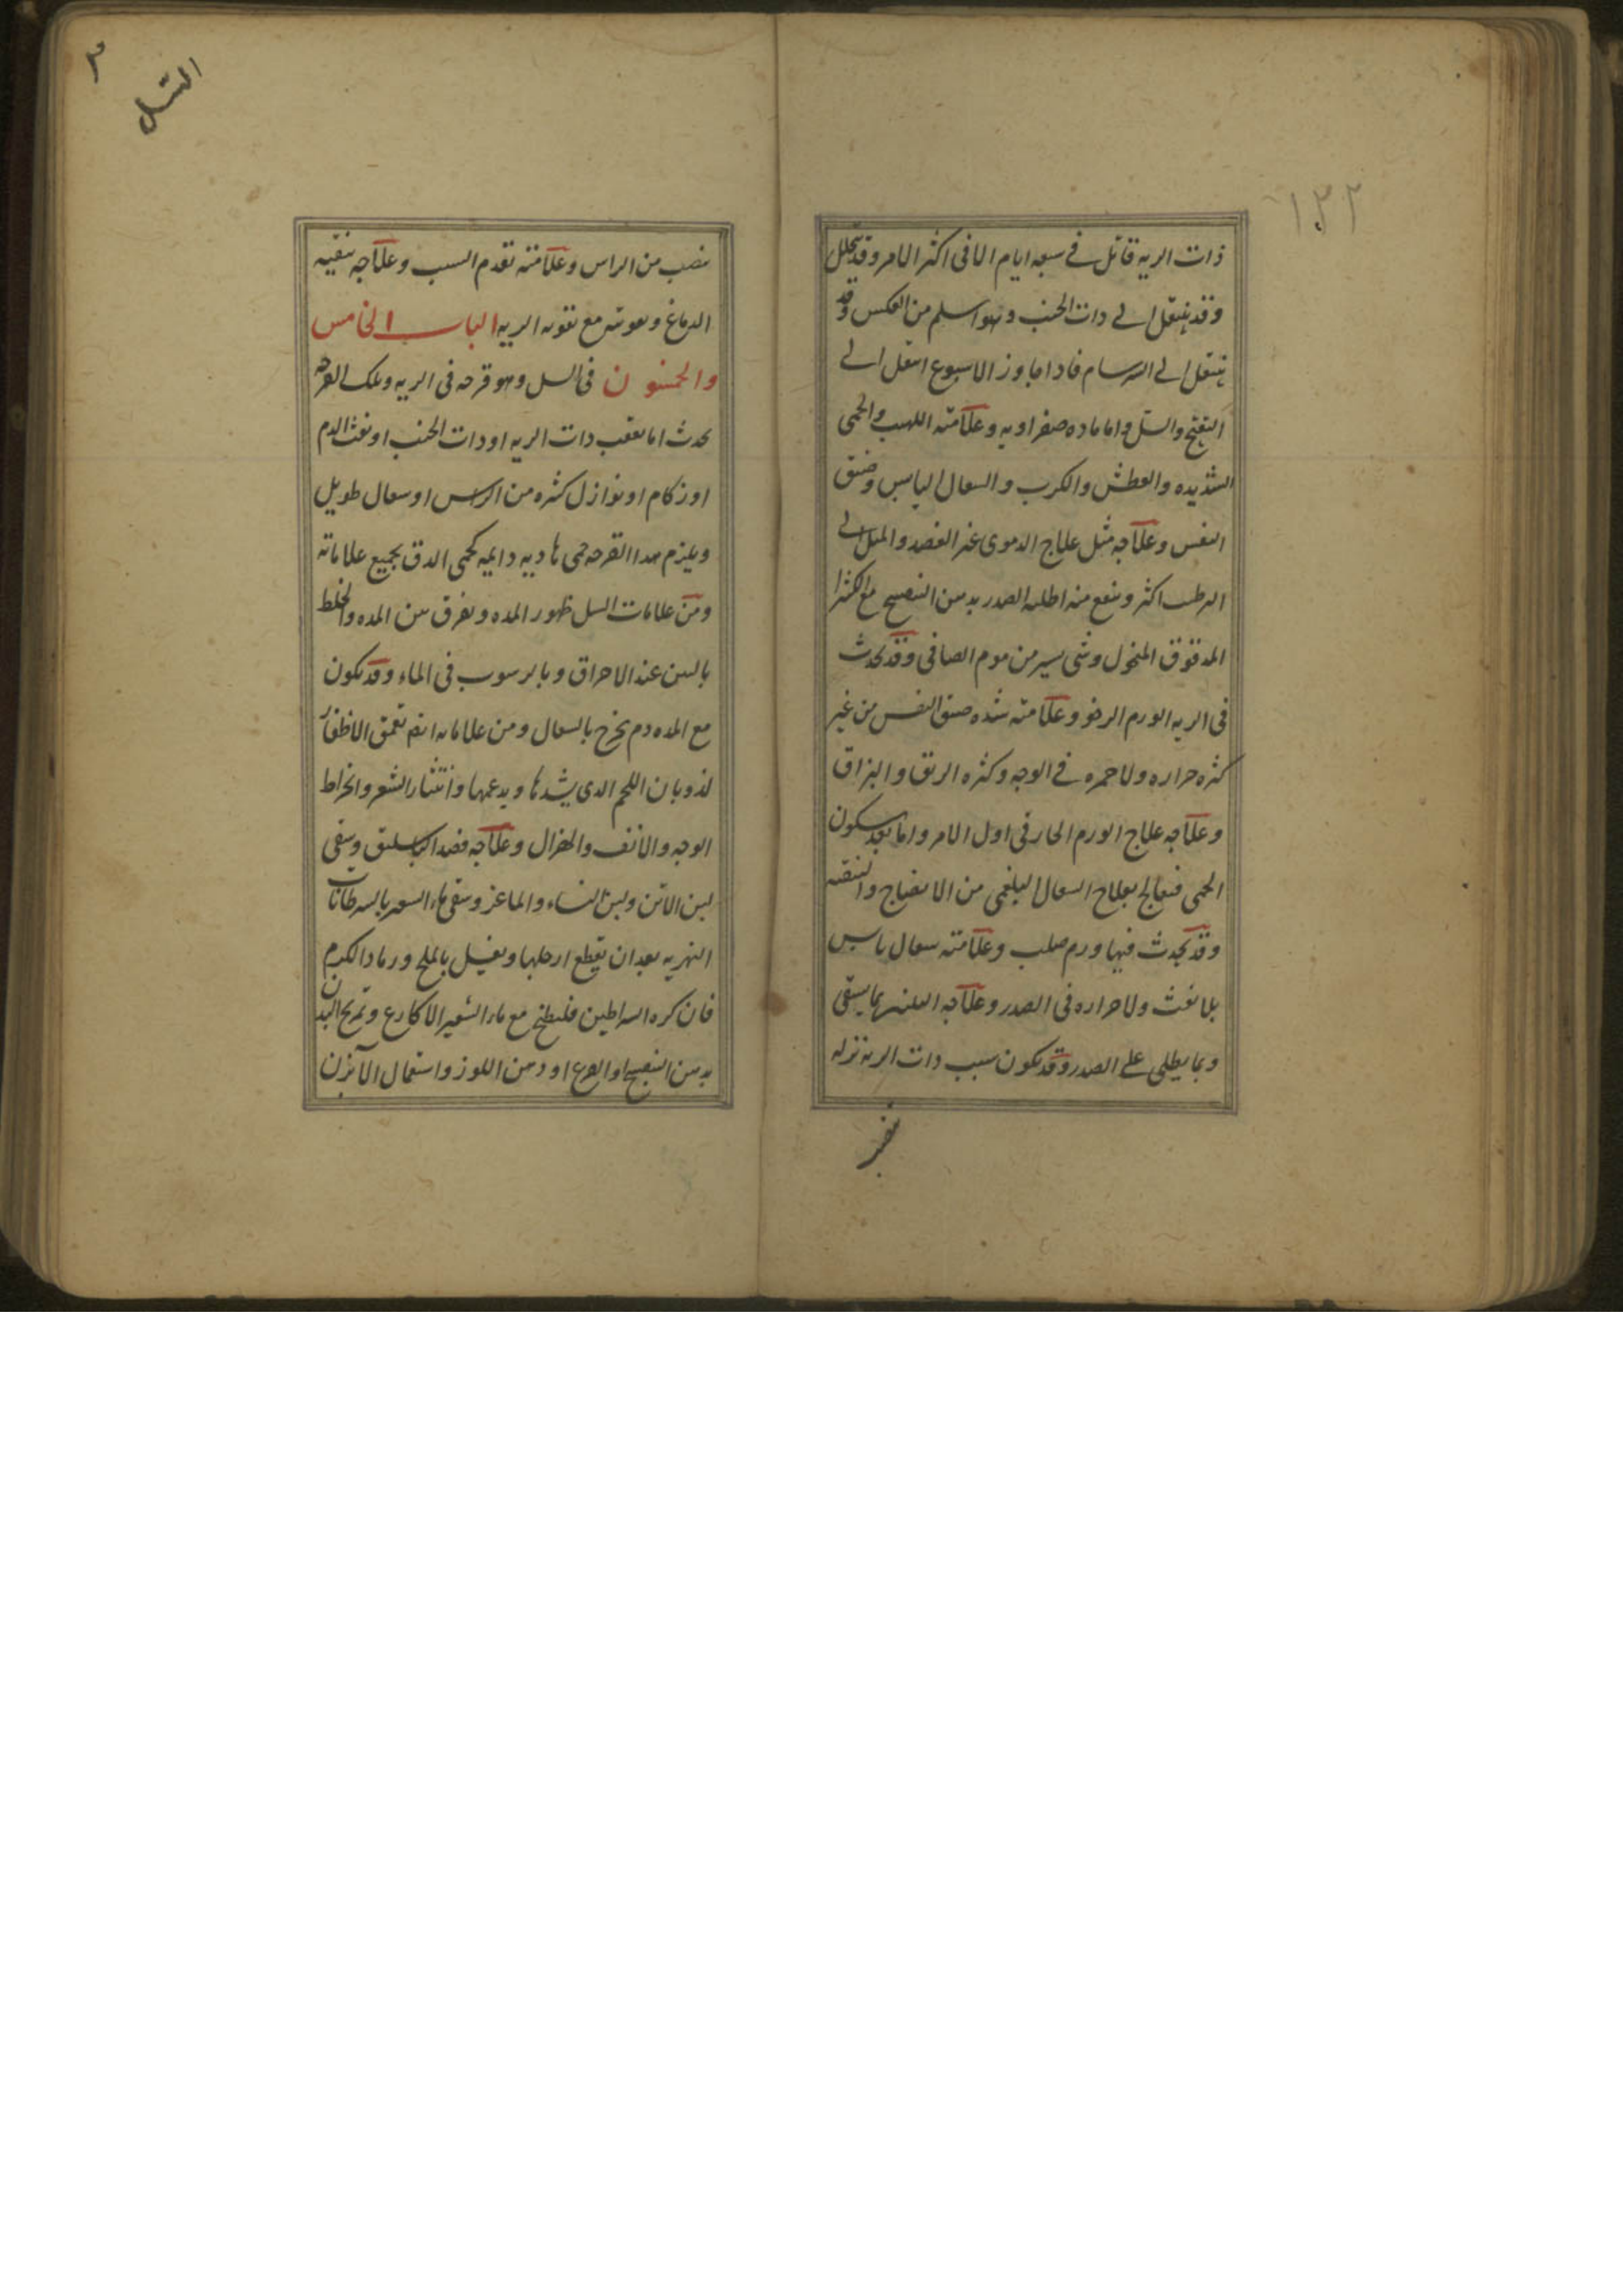 ١٢٢
ذات الريه قاتل فى سبعه ايام الا فى اكثر الامر وقد يتحلل
وقد ينتقل الى ذات الجنب وهو اسلم من العكس وقد
ينتقل الى السرسام فاذا جاوز الاسبوع انتقل الى
التقيح والسل واما ماده صفراويه وعلامته اللهيب والحمى
الشديده والعطش والكرب والسعال اليابس وضيق
النفس وعلاجه مثل علاج الدموى غير الفصد والميل الى
الرطب اكثر وينفع منه اطليه الصدر بدهن البنفسج مع الكثيرا
المدقوق المنخول وشى يسير من موم الصافى وقد يحدث
فى الريه الورم الرخو وعلامته شده ضيق النفس من غير
كثره حراره ولا حمره فى الوجه وكثره الريق والبزاق
وعلاجه علاج الورم الحار فى اول الامر واما بعد سكون
الحمى فيعالج بعلاج السعال البلغمى من الانضاج والتنقيه
وقد يحدث فيها ورم صلب وعلامته سعال يابس
بلا نفث ولا حراره فى الصدر وعلاجه التليين بما يسقى
وبما يطلى على الصدر وقد يكون سبب ذات الريه نزله
السل
ينصب من الراس وعلامته تقدم السبب وعلاجه تنقيه
الدماغ وتقويته مع تقويه الريه الباب الخامس
والخمسون فى السل وهو قرحه فى الريه وتلك القرحه
يحدث اما بعقب ذات الريه او ذات الجنب او نفث الدم
او زكام او نوازل كثيره من الراس او سعال طويل
ويلزم هذا القرحه حمى هاديه دايمه كحمى الدق بجميع علاماته
ومن علامات السل ظهور المده ويفرق بين المده والخلط
بالنتن عند الاحراق وبالرسوب فى الماء وقد يكون
مع المده دم يخرج بالسعال ومن علاماته ايضا تعمق الاظفار
لذوبان اللحم الذى يشدها ويدعمها وانتثار الشعر وانخراط
الوجه والانف والهزال وعلاجه فصد الباسليق وسقى
لبن الاتن ولبن النساء والماعز وسقى ماء الشعير بالسرطانات
النهريه بعد ان يقطع ارجلها ويغسل بالملح ورماد الكرم
فان كره السراطين فليطبخ مع ماء الشعير الاكارع وتمريخ البدن
بدهن البنفسج او القرع او دهن اللوز واستعمال الابزن